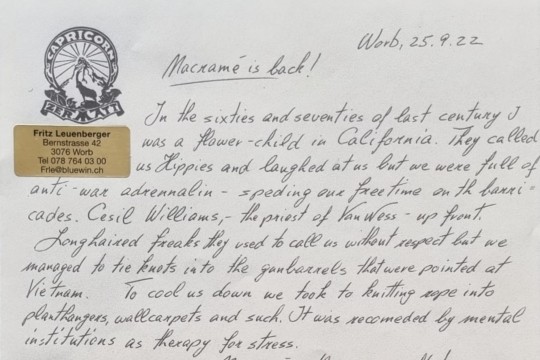 CAPRICORN
ZERMATT
Fritz Leuenberger
Bernstrasse 42
3076 Worb
Tel 078 764 03 00
Frle@bluewin.ch
Worb, 25.9.22
Macramé is back!
In the sixties and seventies of last century I
was a flower-child in California. They called
us Hippies and laughed at us but we were full of
anti-war adrennalin - speding our freetime on th barri-
cades. Cesil Williams,- the priest of Van Wess - up front.
Longhaired freaks they used to call us without respect but we
managed to tie knots into the gunbarrels that were pointed at
Vietnam. To cool us down we took to knitting rope into
planthangers, wallcarpets and such. It was recomeded by mental
institutions as therapy for stress.